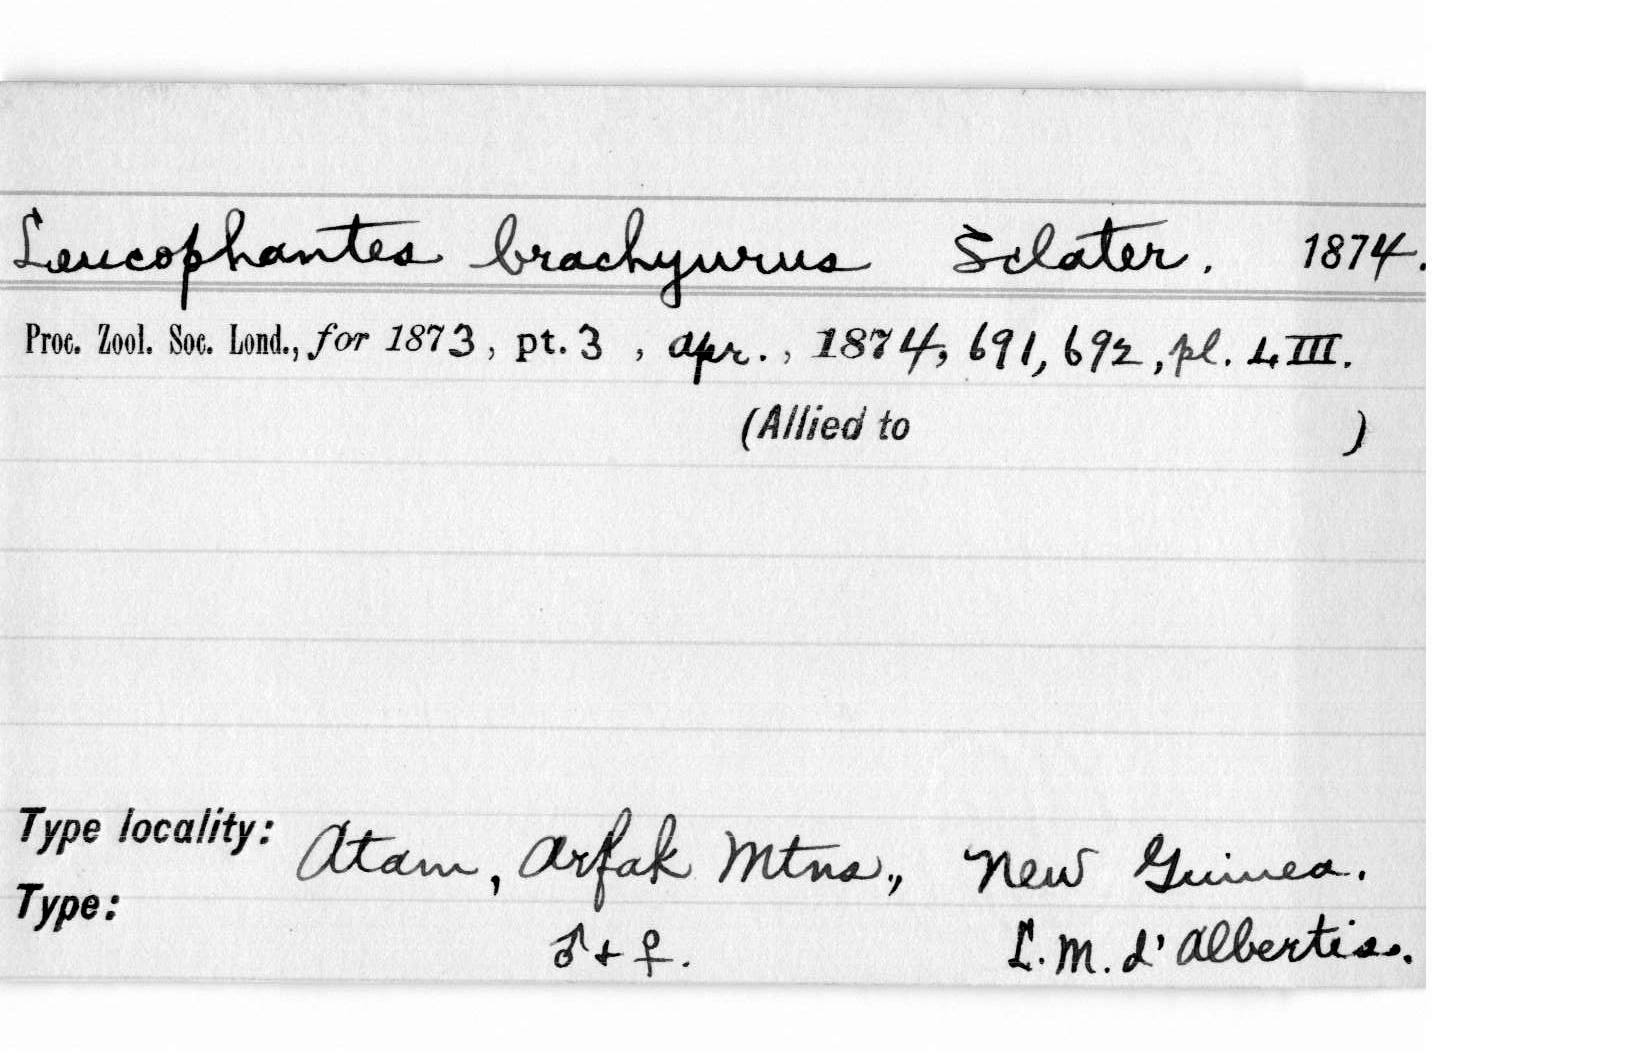 Leucophantes brachyurus Sclater. 1874.
Proc. Zool. Soc. Lond., for 1873, pt. 3, Apr., 1874, 691, 692, pl. LIII.
(Allied to )
Type locality: Atam, Arfak Mtns., New Guinea.
Type: ♂ + ♀. L. M. d'Albertis.